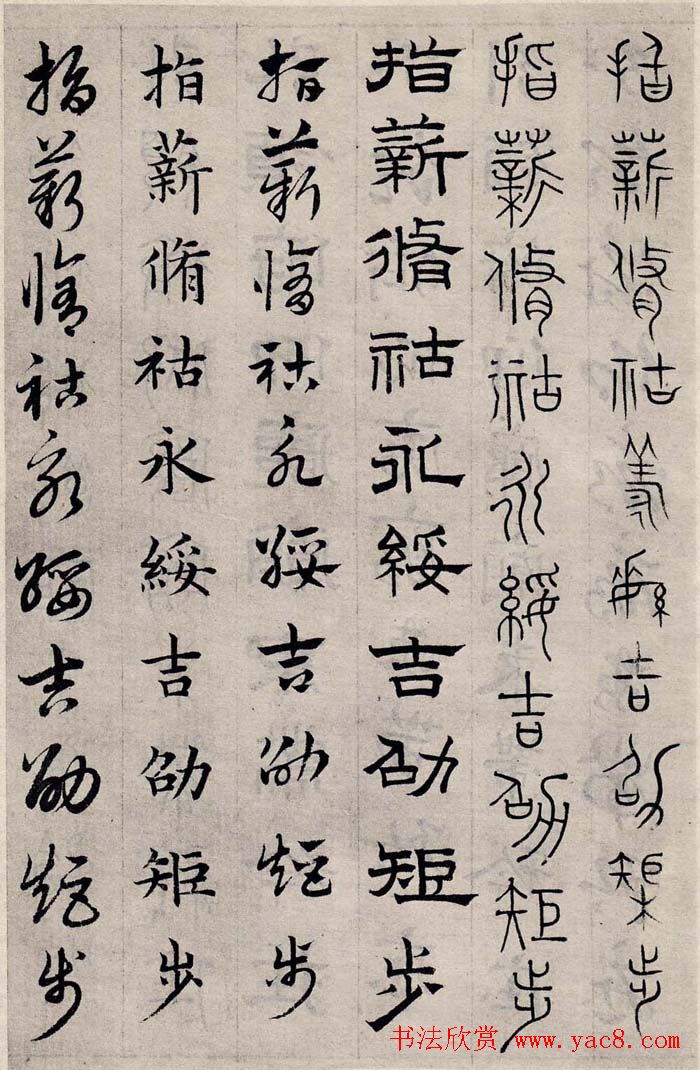 指薪脩祜永綏吉劭榘步
指薪脩祜永綏吉劭矩步
指薪脩祜永綏吉劭矩步
指薪脩祜永綏吉劭矩步
指薪脩祜永綏吉劭矩步
指薪脩祜永綏吉劭矩步
书法欣赏 www.yac8.com